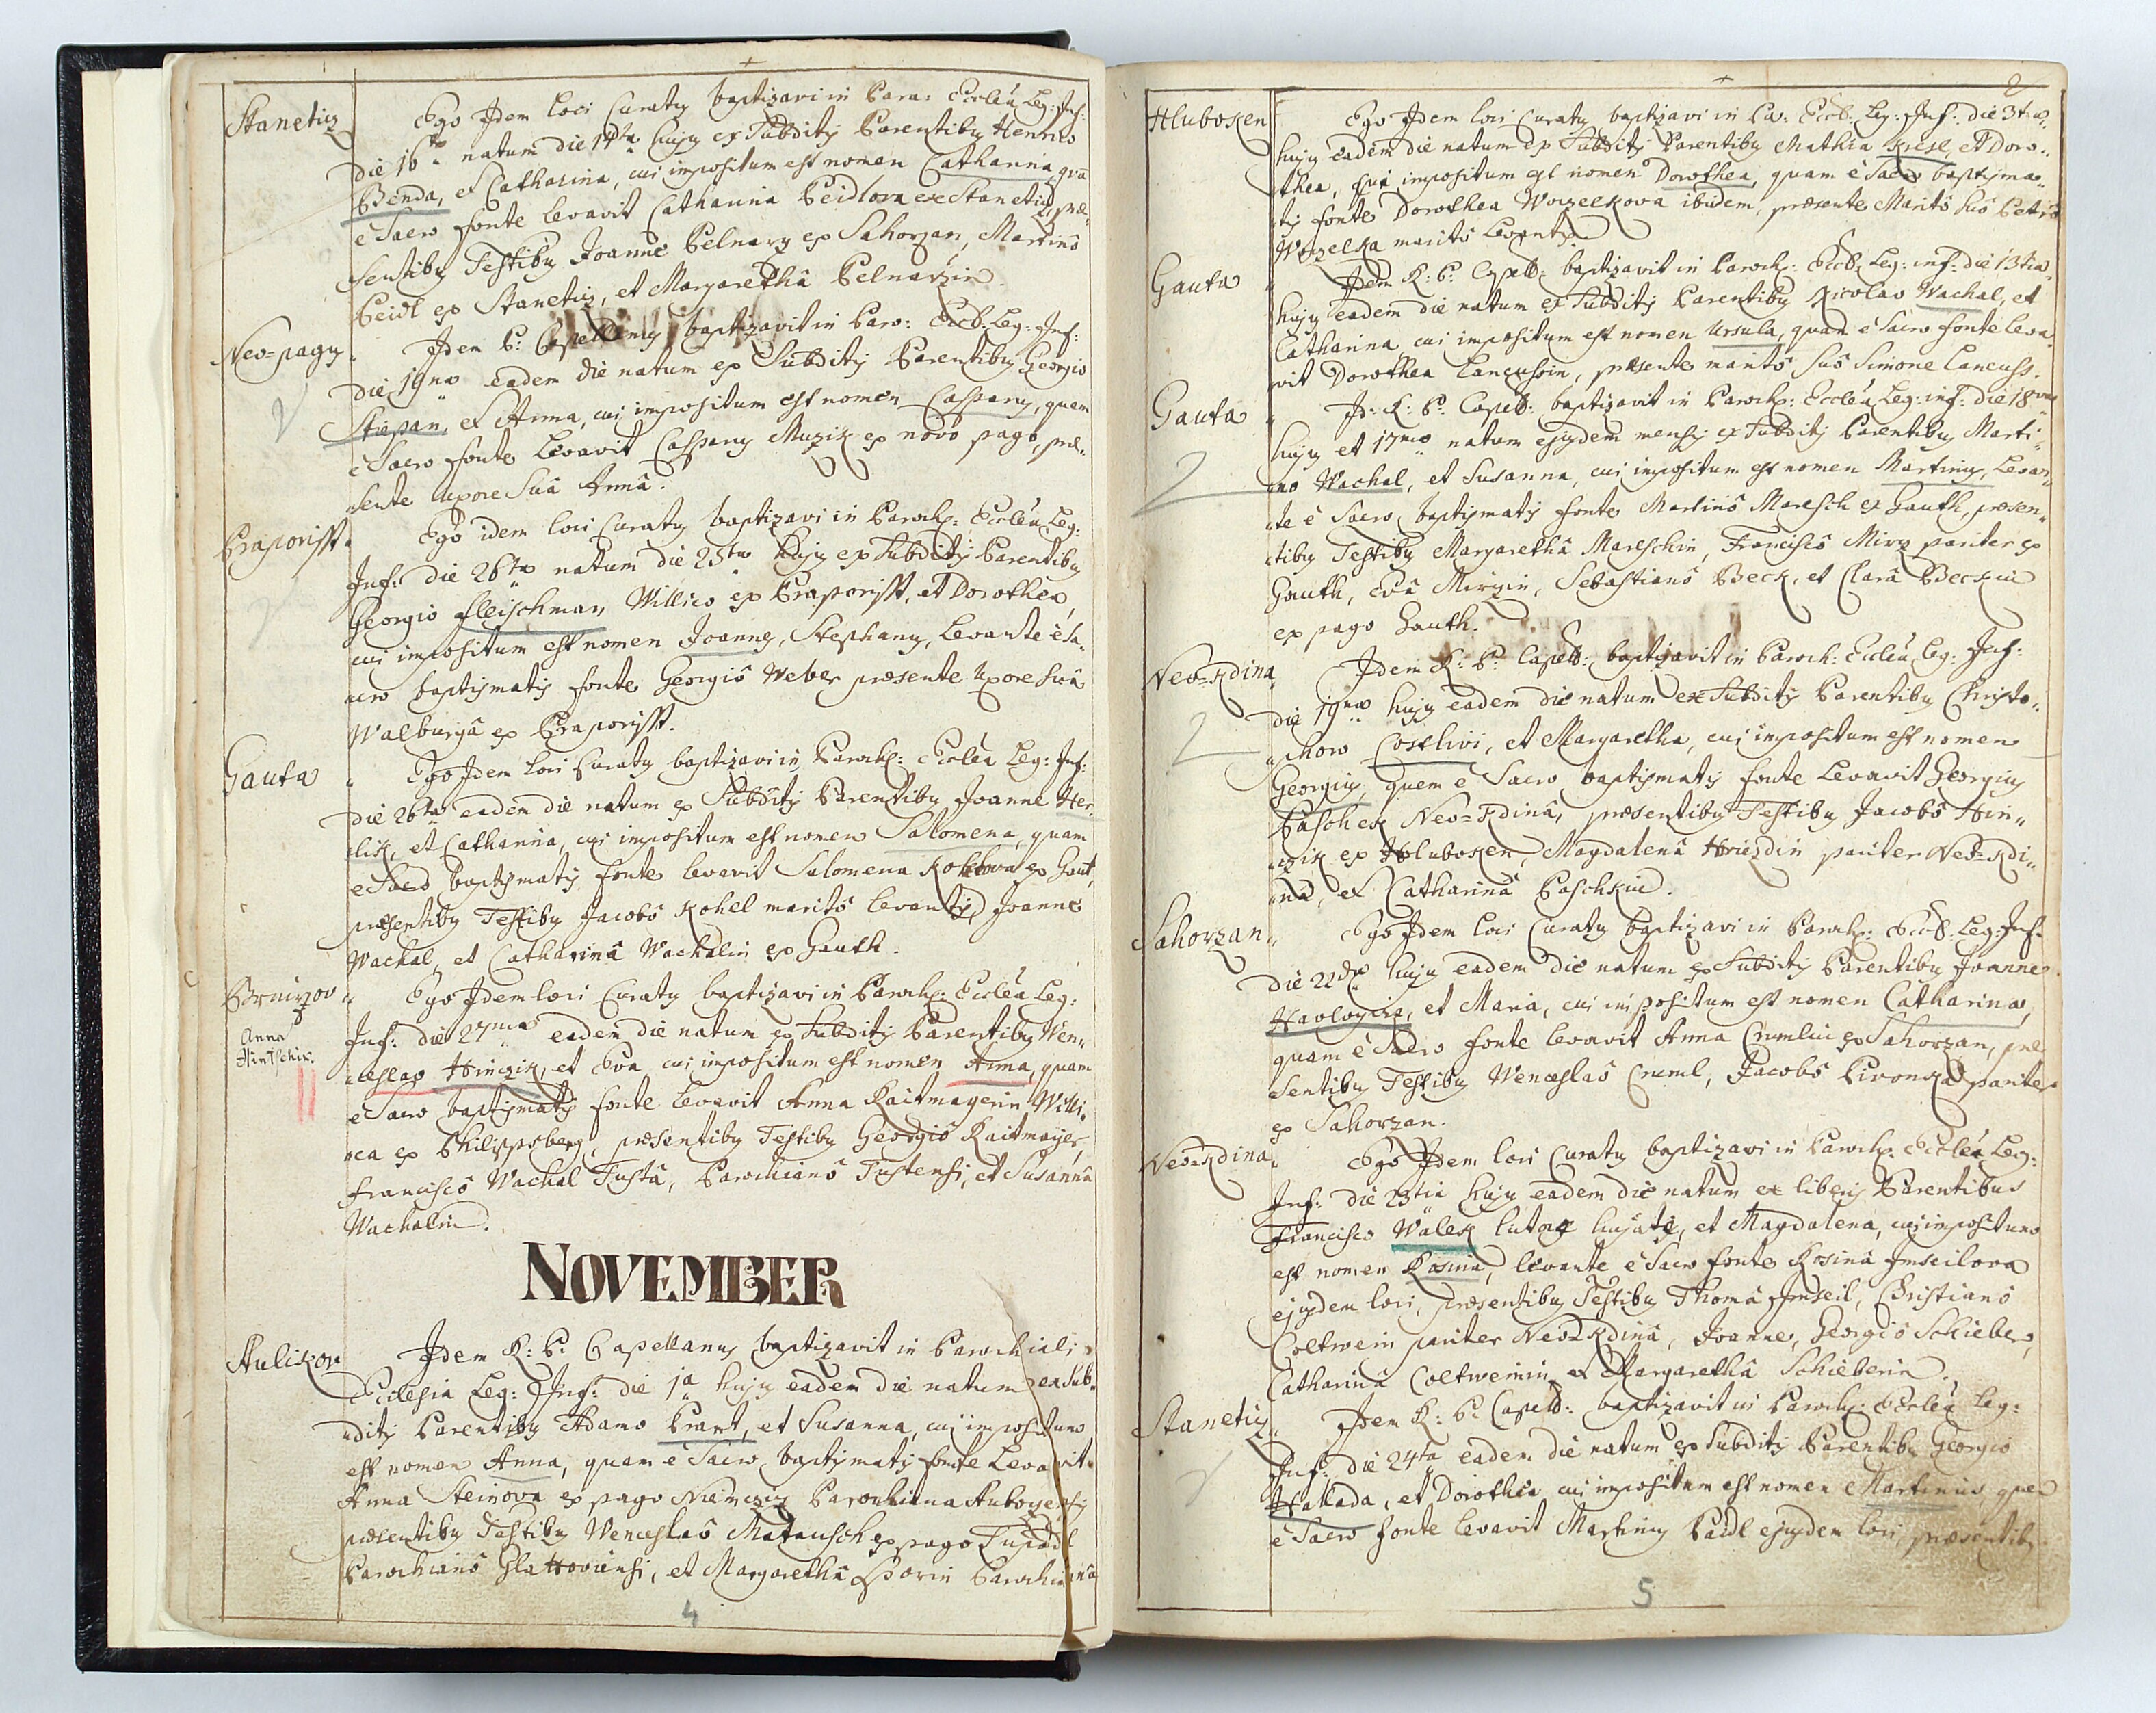 Stanetiz
Ego Idem loci Curatus baptizavi in Paro: Eccleâ Leg: Inf:
die 16ta natum die 14ta hujus ex Subditis Parentibus Henrico
Benda, et Catharina, cui impositum est nomen Catharina, qua
e Sacro fonte levavit Catharina Peidlova ex Stanetiz, præ„
sentibus Testibus Joanne Pelnarz ex Sahorzan, Martino
Peidl ex Stanetiz, et Margarethâ Pelnarzin.
Neo=pagus
Idem P: Capellanus baptizavit in Paro: Eccl: Leg: Inf:
die 19na eadem die natum ex Subditis Parentibus Georgio
Stiepan, et Anna, cui impositum est nomen Casparus, quem
e Sacro fonte Levavit Casparus Muzik ex novo pago, præ„
sente uxore Suâ Annâ.
Praporisst
Ego idem loci Curatus baptizavi in Paroch: Eccleâ Leg:
Inf: die 26ta natum die 25ta hujus ex Subditis Parentibus
Georgio Fleischman Willico ex Praporisst, et Dorothea,
cui impositum est nomen Joannes, Stephanus, Levante è Sa„
cro baptismatis fonte Georgiô Weber præsente uxore Suâ
Walburgâ ex Praporisst.
Gauta
Ego Idem loci Curatus baptizavi in Paroch: Eccleâ Leg: Inf:
die 26ta eadem die natum ex Subditis Parentibus Joanne Her„
lik, et Catharina, cui impositum est nomen Salomena, quam
e Sacro baptismatis fonte levavit Salomena Kohlova ex Gaut,
præsentibus Testibus Jacobô Kohll maritô levantis, Joanne
Wachal, et Catharinâ Wachalin ex Gauth.
Brnirzov
Anna
Hintschik.
Ego Idem loci Curatus baptizavi in Paroch: Eccleâ Leg:
Inf: die 27ma eadem die natum ex Subditis Parentibus Wen„
ceslao Hinczik, et Eva cui impositum est nomen Anna, quam
e Sacro baptismatis fonte levavit Anna Raitmayerin Willi„
ca ex Philippsberg, præsentibus Testibus Georgiô Raitmayer,
Franciscô Wachal Tustâ, Parochianô Tustensi, et Susannâ
Wachalin.
NOVEMBER
Aulikov
Idem R: P: Capellanus baptizavit in Parochiali
Ecclesia Leg: Inf: die 1a hujus eadem die natum ex Sub„
ditis Parentibus Adamo Prant, et Susanna, cui impositum
est nomen Anna, quam è Sacro baptismatis fonte Levavit
Anna Steinova ex pago Niemcziz Parochiana
præsentibus Testibus Wenceslaô Matausch ex pago Tupadl
Parochianô Glattoviensi, et Margarethâ Parochianâ
4
2
Hluboken
Ego Idem loci Curatus baptizavi in Pa: Eccl: Leg: Inf: die 3tia
hujus eadem die natum ex Subditis Parentibus Mathia Kresl et Doro„
thea, cui impositum est nomen Dorothea, quam è Sacro baptisma„
tis fonte Dorothea Worzelkova ibidem, præsente Maritô Suô Petro
Worzelka maritô levantis.
Gauta
Idem R: P: Capell: baptizavit in Paroch: Eccl: Leg: inf: die 13tia
hujus eadem die natum ex Subditis Parentibus Nicolao Wachal, et
Catharina cui impositum est nomen Ursula, quam è Sacro fonte leva„
vit Dorothea Lancussin, præsente maritô Suô Simone Lancuss.
Gauta
Id: R: P: Capell: baptizavit in Paroch: Eccleâ Leg: inf: die 18va
hujus et 17ma natum ejusdem mensis ex Subditis Parentibus Marti„
no Wachal, et Susanna, cui impositum est nomen Martinus, Levan„
te è Sacro baptismatis fonte Martinô Maresch ex Gauth, præsen„
tibus Testibus Margarethâ Mareschin, Franciscô Mirz pariter ex
Gauth, Evâ Mirzin, Sebastianô Beck, et Clarâ Beckin
ex pago Gauth.
Neo=Kdina
Idem R: P: Capell: baptizavit in Paroch: Eccleâ Leg: Inf:
die 19na hujus eadem die natum ex Subditis Parentibus Christo„
phoro Costlivi, et Margaretha, cui impositum est nomen
Georgius, quem è Sacro baptismatis fonte Levavit Georgius
Paschek Neo=Kdinâ, præsentibus Testibus Jacobô Hin„
czik ex Hluboken, Magdalenâ Hvizdin pariter Neo=Kdi„
nâ, et Catharinâ Paschkin.
Sahorzan
Ego Idem loci Curatus baptizavi in Paroch: Eccl: Leg: Inf:
die 22da hujus eadem die natum ex Subditis Parentibus Joanne
et Maria, cui impositum est nomen Catharina,
quam è Sacro fonte levavit Anna Crumlin ex Sahorzan, præ
sentibus Testibus Wenceslaô Cruml, Jacobô Pivonka pariter
ex Sahorzan.
Neo=Kdina
Ego Idem loci Curatus baptizavi in Paroch: Eccleâ Leg:
Inf: die 23tia hujus eadem die natum ex liberis Parentibus
Francisco Walek hujate, et Magdalena, cui impositum
est nomen Rosina, levante è Sacro fonte Rosinâ Imseilova
ejusdem loci, præsentibus Testibus Thomâ Imseil, Christianô
Coltwein pariter Neo=Kdinâ, Joanne, Georgiô Schieber,
Catharinâ Coltweinin et Margarethâ Schieberin.
Stanetiz
Idem R: P: Capell: baptizavit in Paroch: Eccleâ Leg:
Inf: die 24ta eadem die natum ex Subditis Parentibus Georgio
Hallada, et Dorothea cui impositum est nomen Martinus quem
è Sacro fonte levavit Martinus Paidl ejusdem loci, præsentib:
5